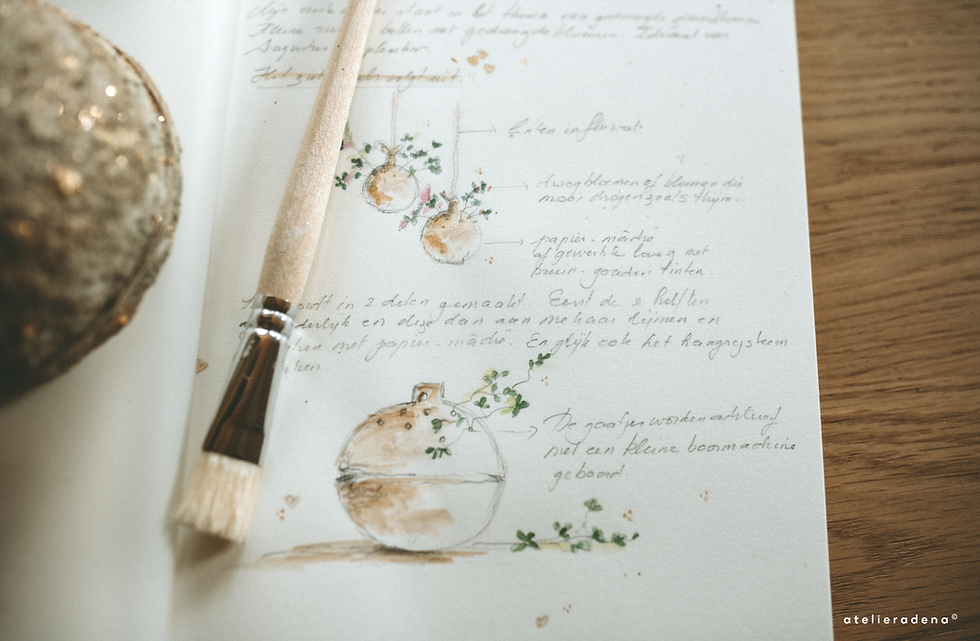 Mijn eerste staat in het thema van gedroogde
Kleine ballen met gedroogde bloemen.
Augustus september.
als volgt uit.
linten in fluweel.
droogbloemen of bloemen die
mooi drogen zoals thijm..
papier-mâché
afgewerkte laag met
bruin-gouden tinten.
in 2 delen gemaakt. Eerst de 2 helften
en deze dan aan mekaar lijmen en
met papier-mâché. En gelijk ook het hangsysteem
De gaatjes worden achteraf
met een kleine boormachine
geboord
atelieradena©